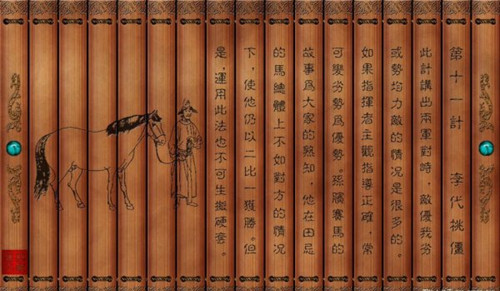 第十一計 李代桃僵
此計講出兩軍對時，敵優我劣
或勢均力敵的情况是很多的。
如果指揮者主觀指導正確，常
可變劣勢爲優勢。孫臏賽馬的
故事爲大家的熟知，他在田忌
的馬總體上不如對方的情况
下，使他仍以二比一獲勝。但
是，運用此法也不可生搬硬套。